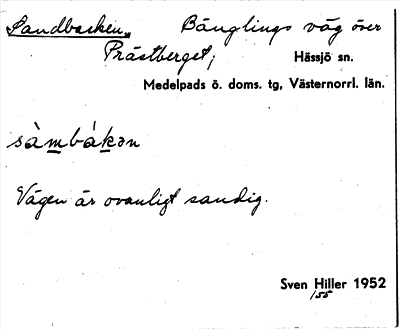 Sandbacken, Bänglings väg över
Prästberget; Hässjö sn.
Medelpads ö. doms. tg, Västernorrl. län.
sàmbákən
Vägen är ovanligt sandig.
Sven Hiller 1952
155